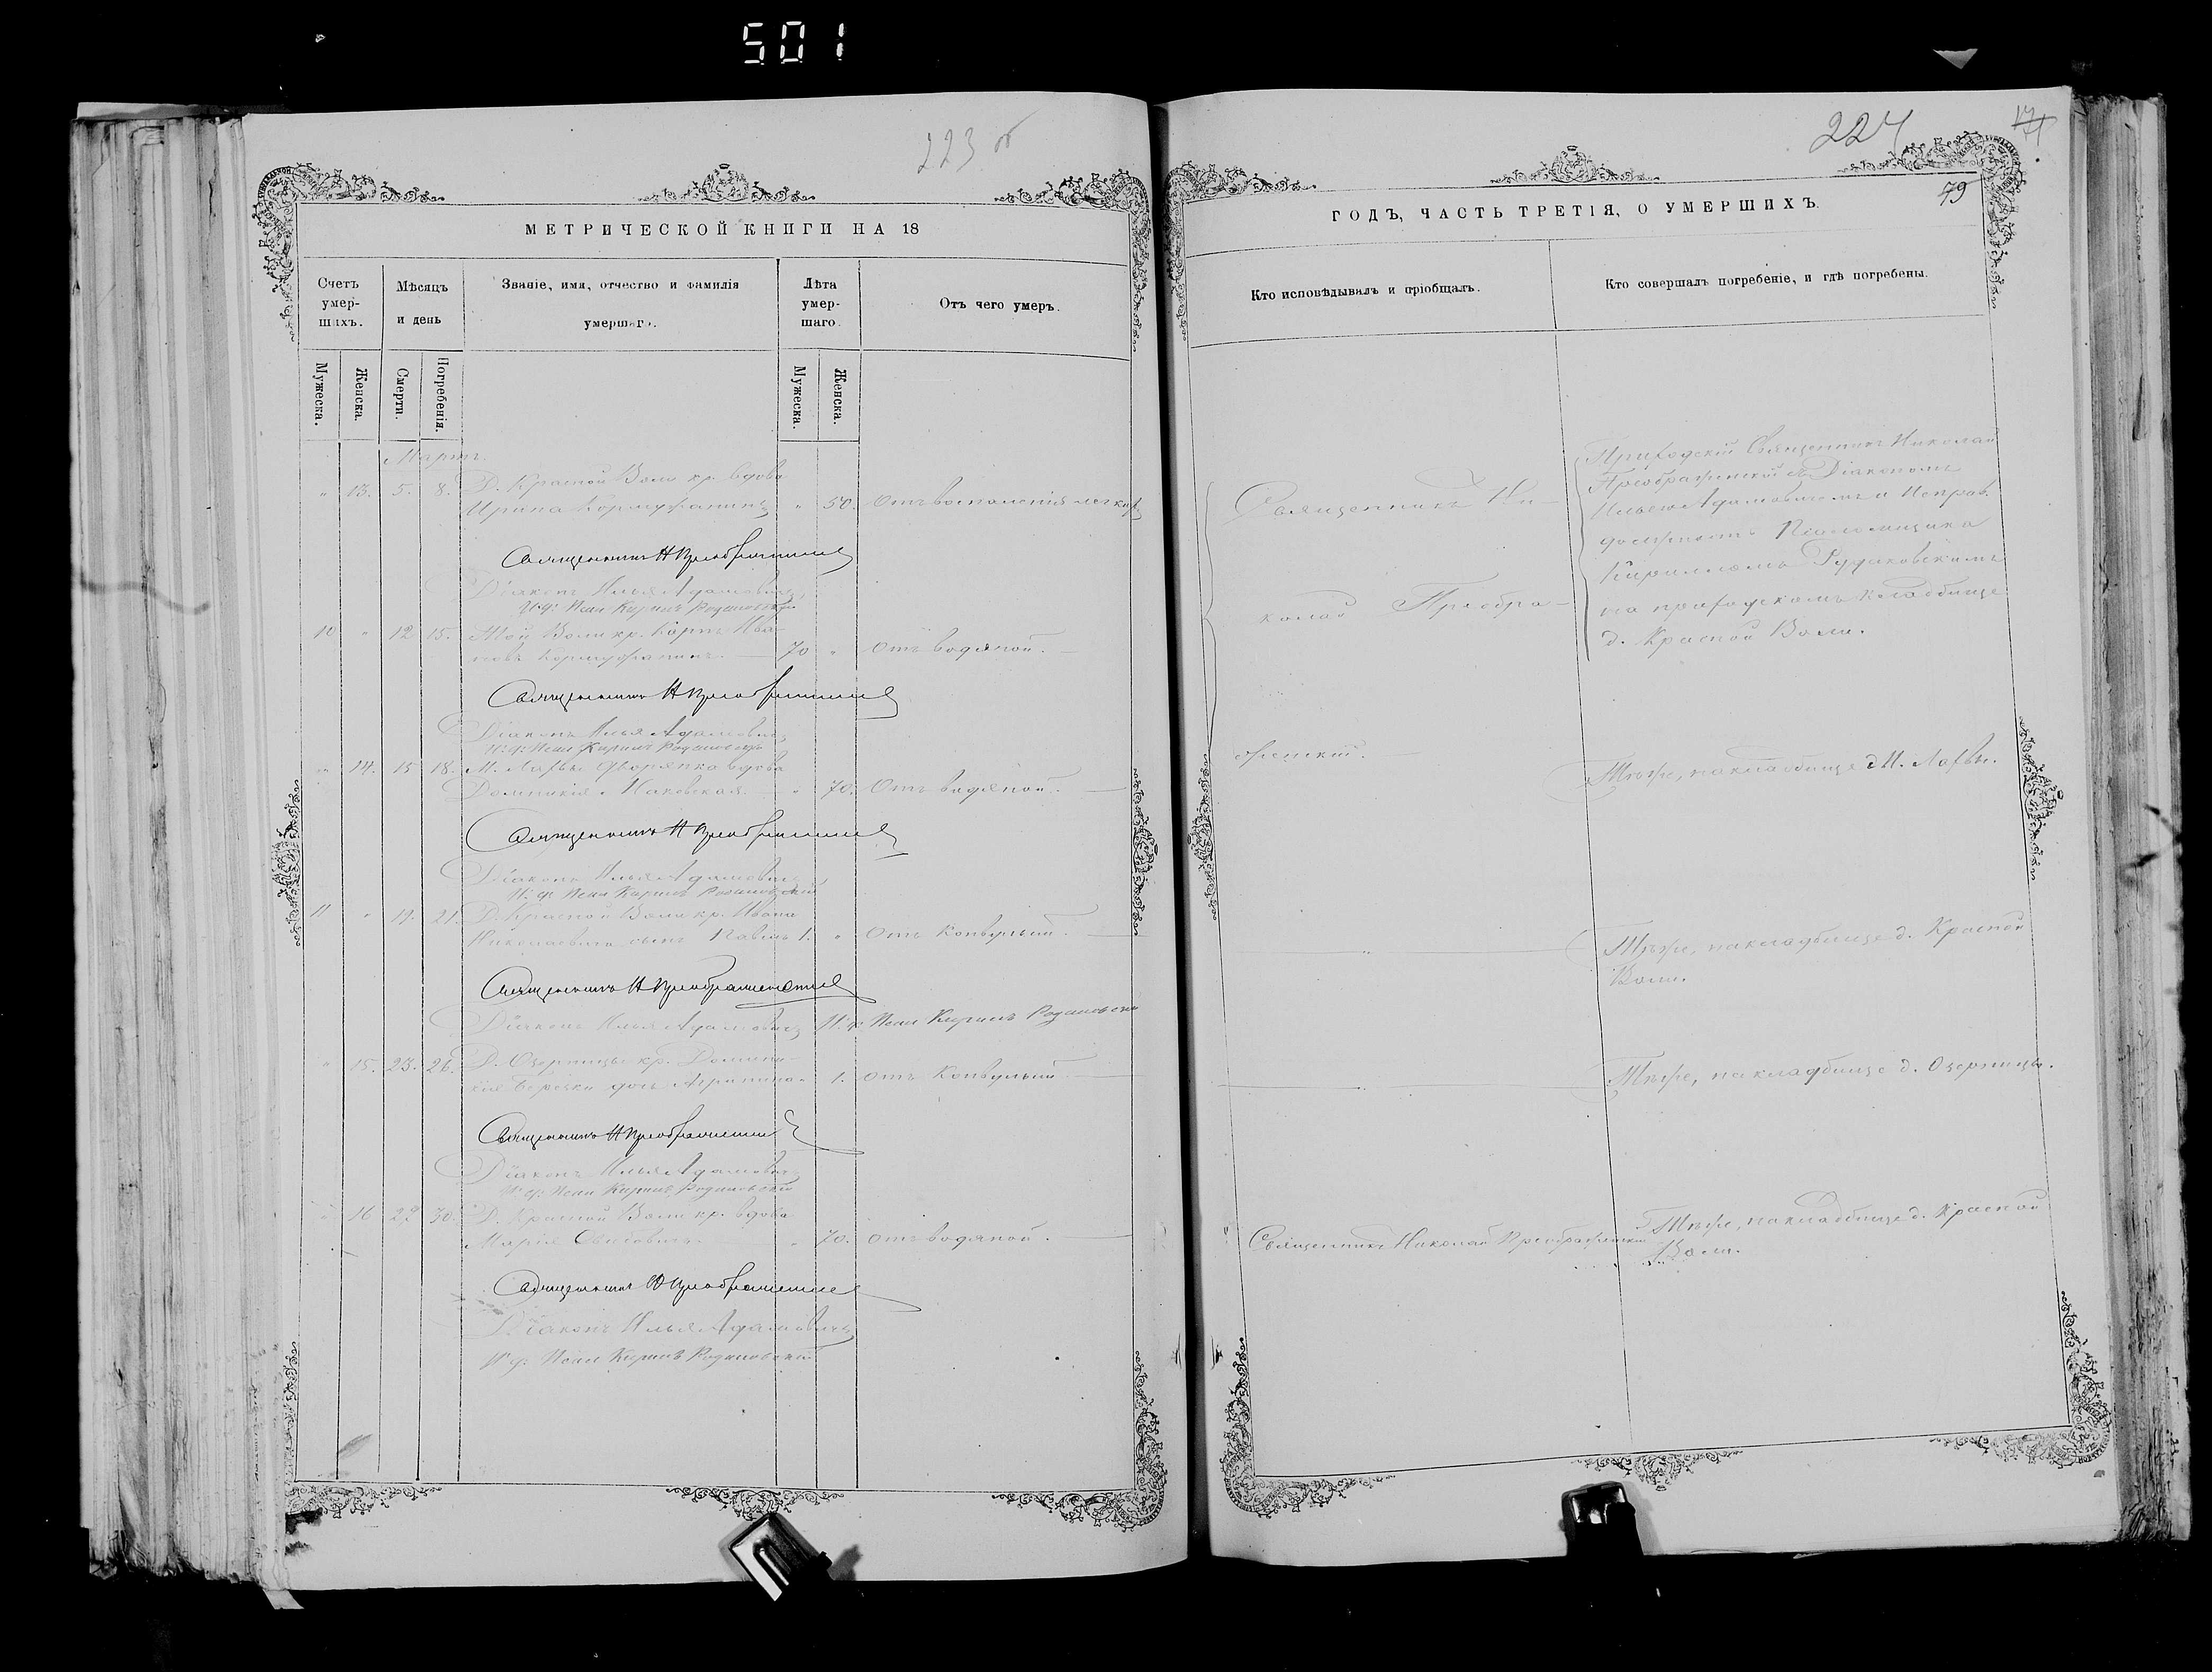 501
223 об
МЕТРИЧЕСКОЙ КНИГИ НА 18
Счетъ умер-шихъ.
Мѣсяцъ и день
Званіе, имя, отчество и фамилія умершаго.
Лѣта умер-шаго.
Отъ чего умеръ.
Мужеска.
Женска.
Смерти.
Погребенія.
Мужеска.
Женска.
Мартъ.
" 13. 5. 8. Д. Красной Воли кр. вдова
Ирина " 50. Отъ воспаленія легкихъ
Священникъ Н Преображенскій
Діаконъ Илья Адамовичъ
И. д. Псал Кирилъ
10 " 12 15. Той Воли кр. Карпъ Ива-
новъ 70 " Отъ водяной.
Священникъ Н Преображенскій
Діаконъ Илья Адамовичъ
И. д. Псал Кирилъ
" 14. 15 18. М. Лахвы дворянка вдова
Домникія " 70. Отъ водяной.
Священникъ Н Преображенскій
Діаконъ Илья Адамовичъ
И. д. Псал Кирилъ
11 " 19. 21. Д. Красной Воли кр. Ивана
Николаевича сынъ Павелъ 1. " Отъ конвульсій.
Священникъ Н Преображенскій
Діаконъ Илья Адамовичъ И. д. Псал Кирилъ
" 15. 23. 26. Д. Озерницы кр. Домини-
кія дочь Агрипина 1. Отъ конвульсій
Священникъ Н Преображенскій
Діаконъ Илья Адамовичъ
И. д. Псал Кирилъ
" 16 27 30. Д. Красной Воли кр. вдова
Марія " 70. Отъ водяной.
Священникъ Н Преображенскій
Діаконъ Илья Адамовичъ
И. д. Псал Кирилъ
224
79
ГОДЪ, ЧАСТЬ ТРЕТІЯ, О УМЕРШИХЪ.
Кто исповѣдывалъ и пріобщалъ.
Кто совершалъ погребеніе, и гдѣ погребены.
Священникъ Ни-
колай Преобра-
женскій.
Приходскій Священникъ Николай
Преображенскій съ Діакономъ
Ильею Адамовичемъ и Исправ.
должность Псаломщика
Кирилломъ
на приходскомъ кладбищѣ
д. Красной Воли.
Тѣже, на кладбищѣ М. Лахвы.
Тѣже, на кладбищѣ д. Красной
Воли.
Тѣже, на кладбищѣ д. Озерницы.
Священникъ Николай Преображенскій
Тѣже, на кладбищѣ д. Красной
Воли.